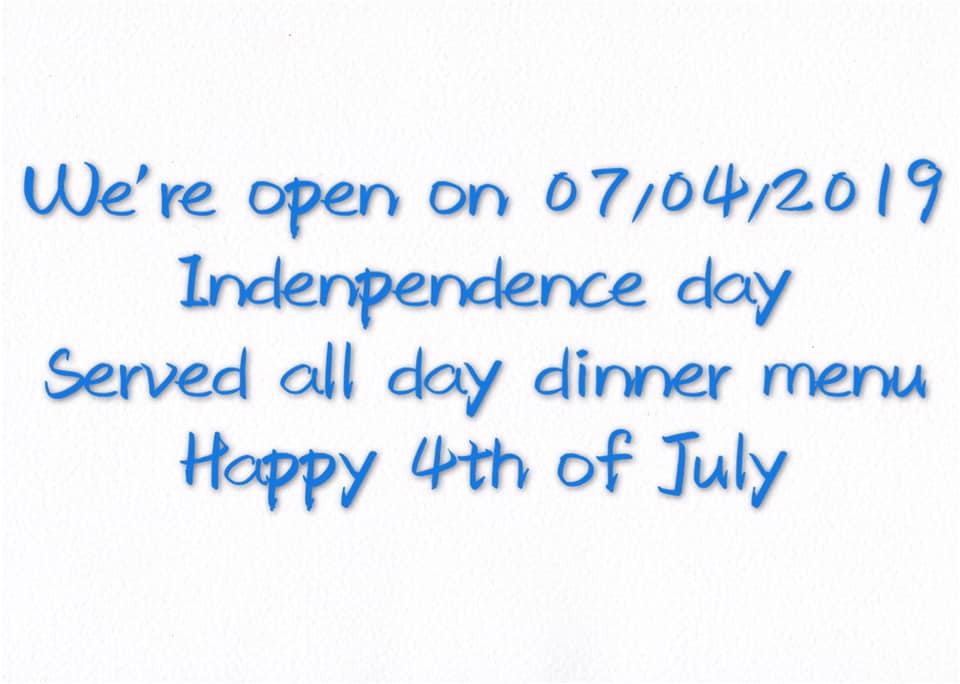 We're open on 07/04/2019
Indenpendence day
Served all day dinner menu
Happy 4th of July